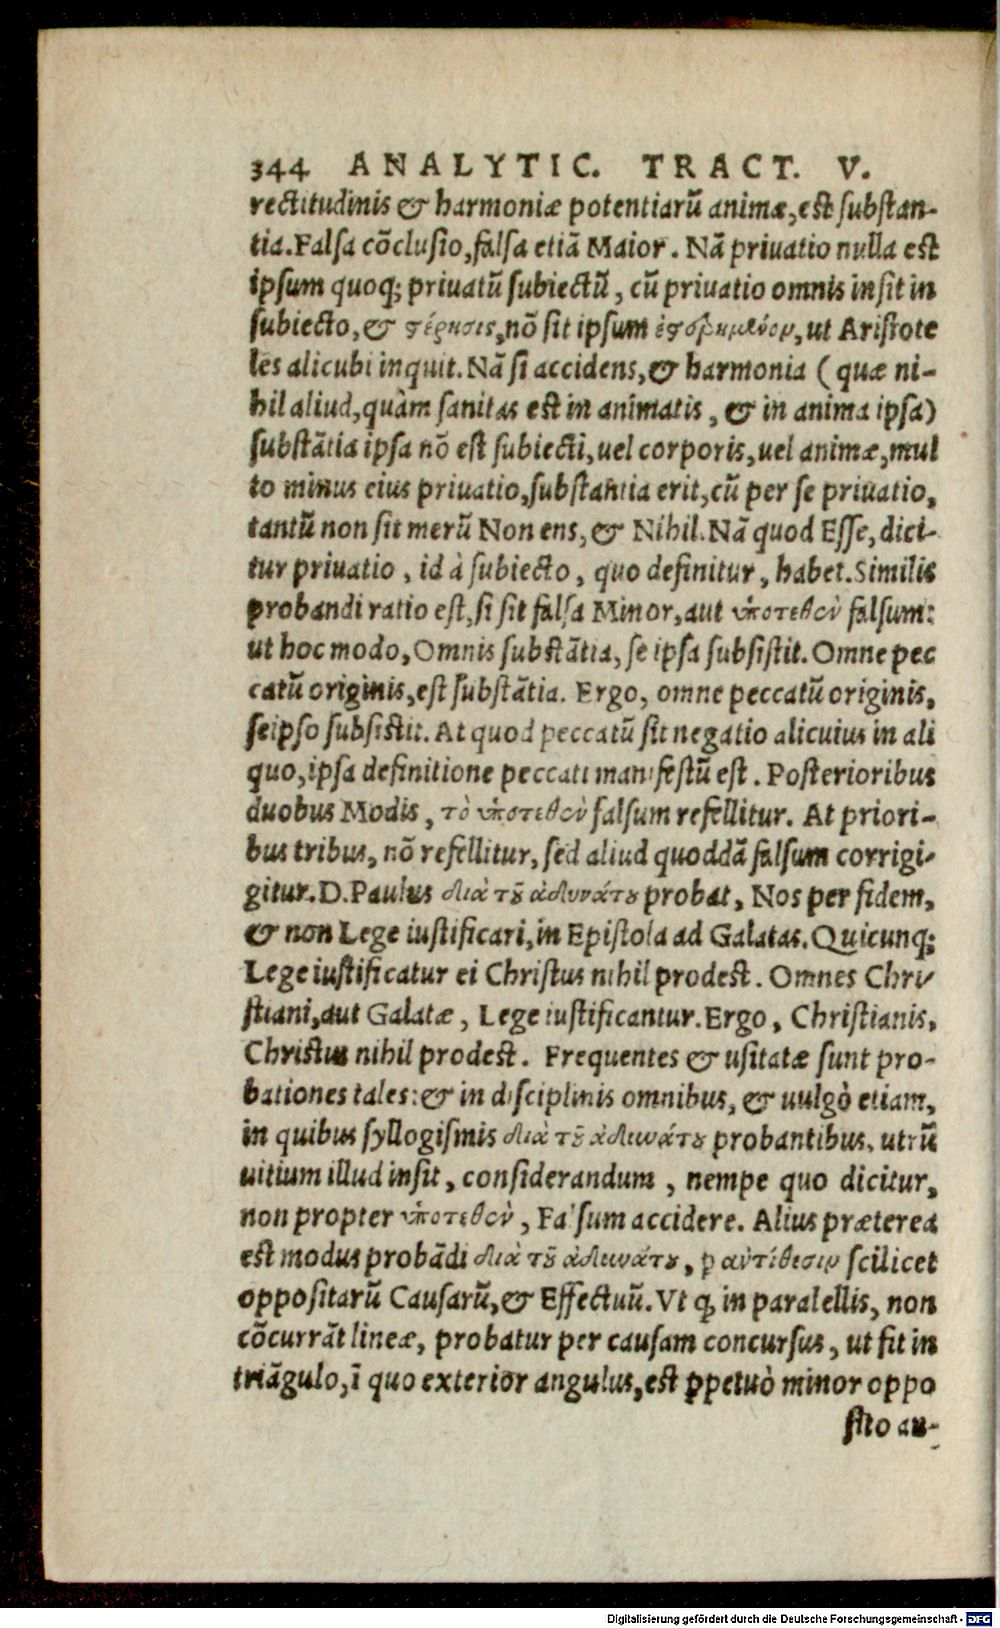 344 ANALYTIC. TRACT. V.
rectitudinis & harmoniæ potentiarũ animæ, est substan-
tia. Falsa cõclusio, falsa etiã Maior. Nã priuatio nulla est
ipsum quoq; priuatũ subiectũ, cũ priuatio omnis insit in
subiecto, & στέρησις, nõ sit ipsum ἐστερημένον, ut Aristote
les alicubi inquit. Nã si accidens, & harmonia (quæ ni-
hil aliud, quàm sanitas est in animatis, & in anima ipsa)
substãtia ipsa nõ est subiecti, uel corporis, uel animæ, mul
to minus eius priuatio, substantia erit, cũ per se priuatio,
tantũ non sit merũ Non ens, & Nihil. Nã quod Esse, dici-
tur priuatio, id à subiecto, quo definitur, habet. Similis
probandi ratio est, si sit falsa Minor, aut ὑποτεθὲν falsum:
ut hoc modo, Omnis substãtia, se ipsa subsistit. Omne pec
catũ originis, est substãtia. Ergo, omne peccatũ originis,
seipso subsistit. At quod peccatũ sit negatio alicuius in ali
quo, ipsa definitione peccati manifestũ est. Posterioribus
duobus Modis, τὸ ὑποτεθὲν falsum refellitur. At priori-
bus tribus, nõ refellitur, sed aliud quoddã falsum corrigi-
gitur. D. Paulus διὰ τ͂ȣ ἀδυνάτȣ probat, Nos per fidem,
& non Lege iustificari, in Epistola ad Galatas. Quicunq;
Lege iustificatur ei Christus nihil prodest. Omnes Chri-
stiani, aut Galatæ, Lege iustificantur. Ergo, Christianis,
Christus nihil prodest. Frequentes & usitatæ sunt pro-
bationes tales: & in disciplinis omnibus, & uulgò etiam,
in quibus syllogismis διὰ τ͂ȣ ἀδυνάτȣ probantibus, utrũ
uitium illud insit, considerandum, nempe quo dicitur,
non propter ὑποτεθὲν, Falsum accidere. Alius præterea
est modus probãdi διὰ τ͂ȣ ἀδυνάτȣ, ꝑ αὐτίθεσιν scilicet
oppositarũ Causarũ, & Effectuũ. Vt ꝙ, in paralellis, non
cõcurrãt lineæ, probatur per causam concursus, ut fit in
triãgulo, ĩ quo exterior angulus, est ꝑpetuò minor oppo
sito an-
Digitalisierung gefördert durch die Deutsche Forschungsgemeinschaft - DFG